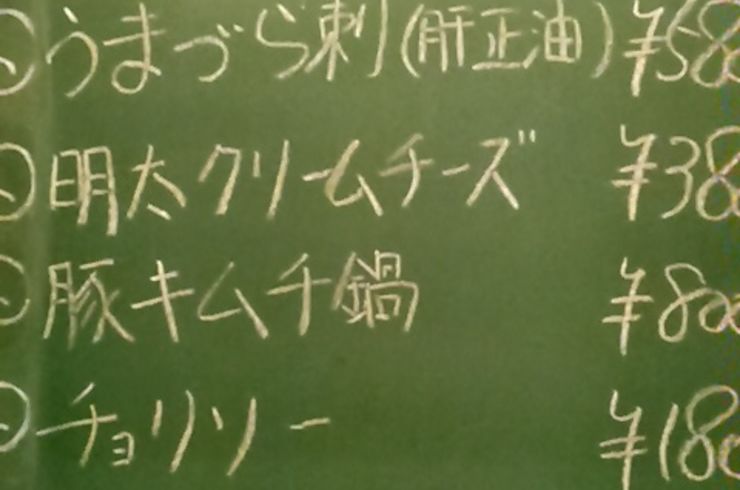 うまづら刺(肝正油) ¥58
明太クリームチーズ ¥38
豚キムチ鍋 ¥80
チョリソー ¥18